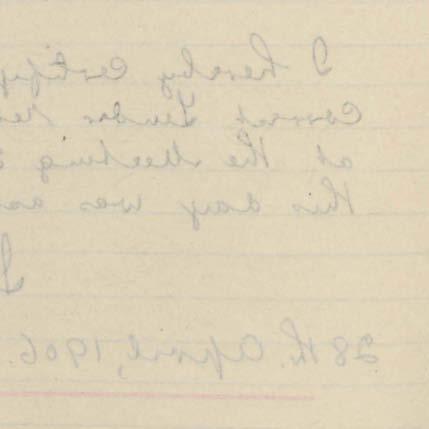 I hereby certify
correct Tender
at the Meeting
this day was
28th. April, 1906.